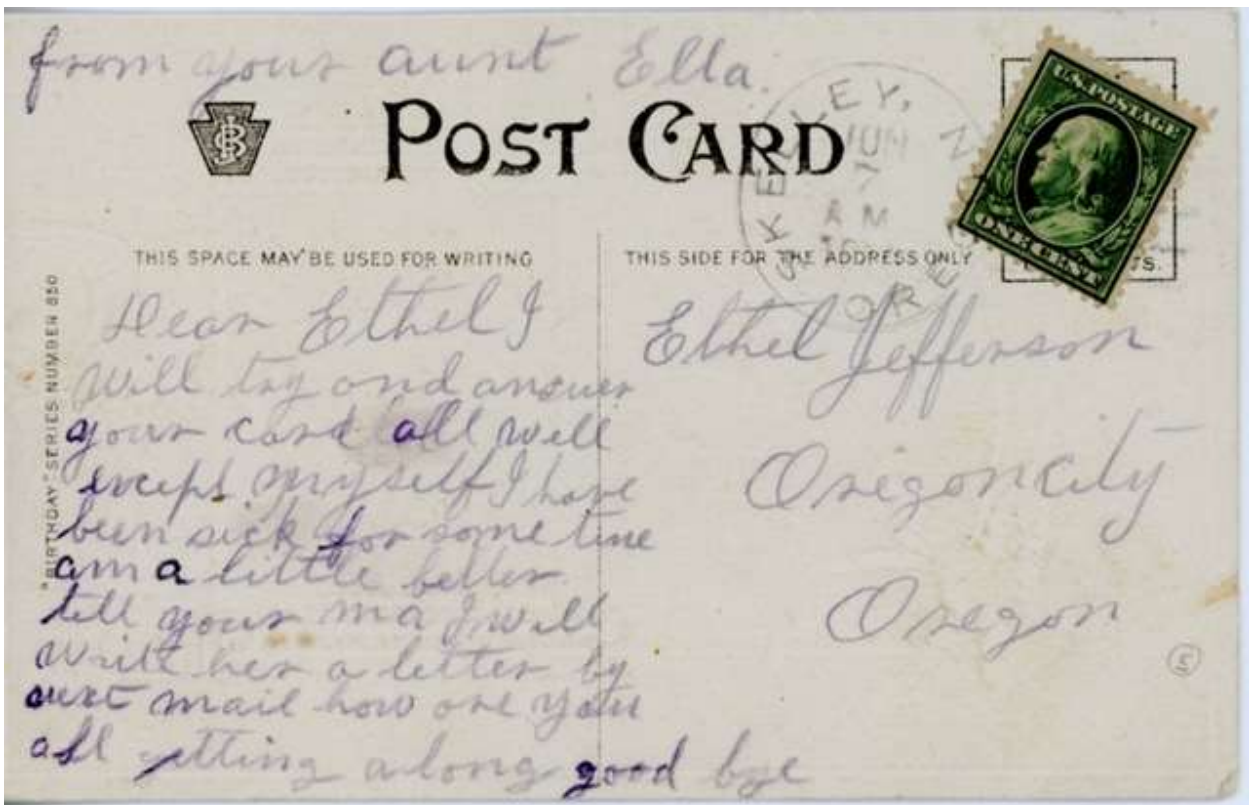 from your aunt Ella.
POST CARD
THIS SPACE MAY BE USED FOR WRITING
THIS SIDE FOR THE ADDRESS ONLY
"BIRTHDAY" SERIES NUMBER 850
KELLEY,
JUN
A M
ORE
U.S. POSTAGE
ONE CENT
Dear Ethel I
will try and answer
your card all well
except myself I have
been sick for some time
am a little better
tell your ma I will
write her a letter by
next mail how are you
all getting along good bye
Ethel Jefferson
Oregon City
Oregon